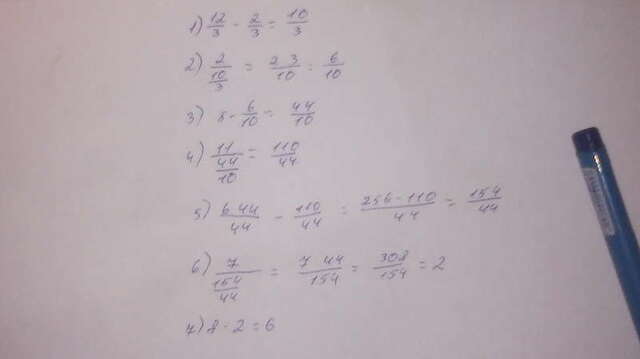 1) 12/3 - 2/3 = 10/3
2) 2/(10/3) = 2 3/10 = 6/10
3) 5 - 6/10 = 44/10
4) 11/(44/10) = 110/44
5) 6 44/44 - 110/44 = 256-110/44 = 154/44
6) 7/(154/44) = 7 44/154 = 308/154 = 2
7) 8 - 2 = 6